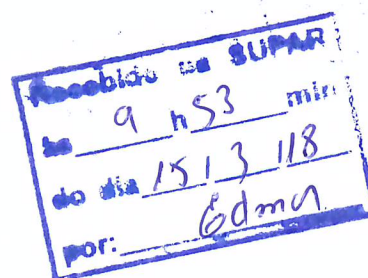 Recebido na SUPAR
às 9 h 53 min
do dia 15 / 3 / 18
por: Edma